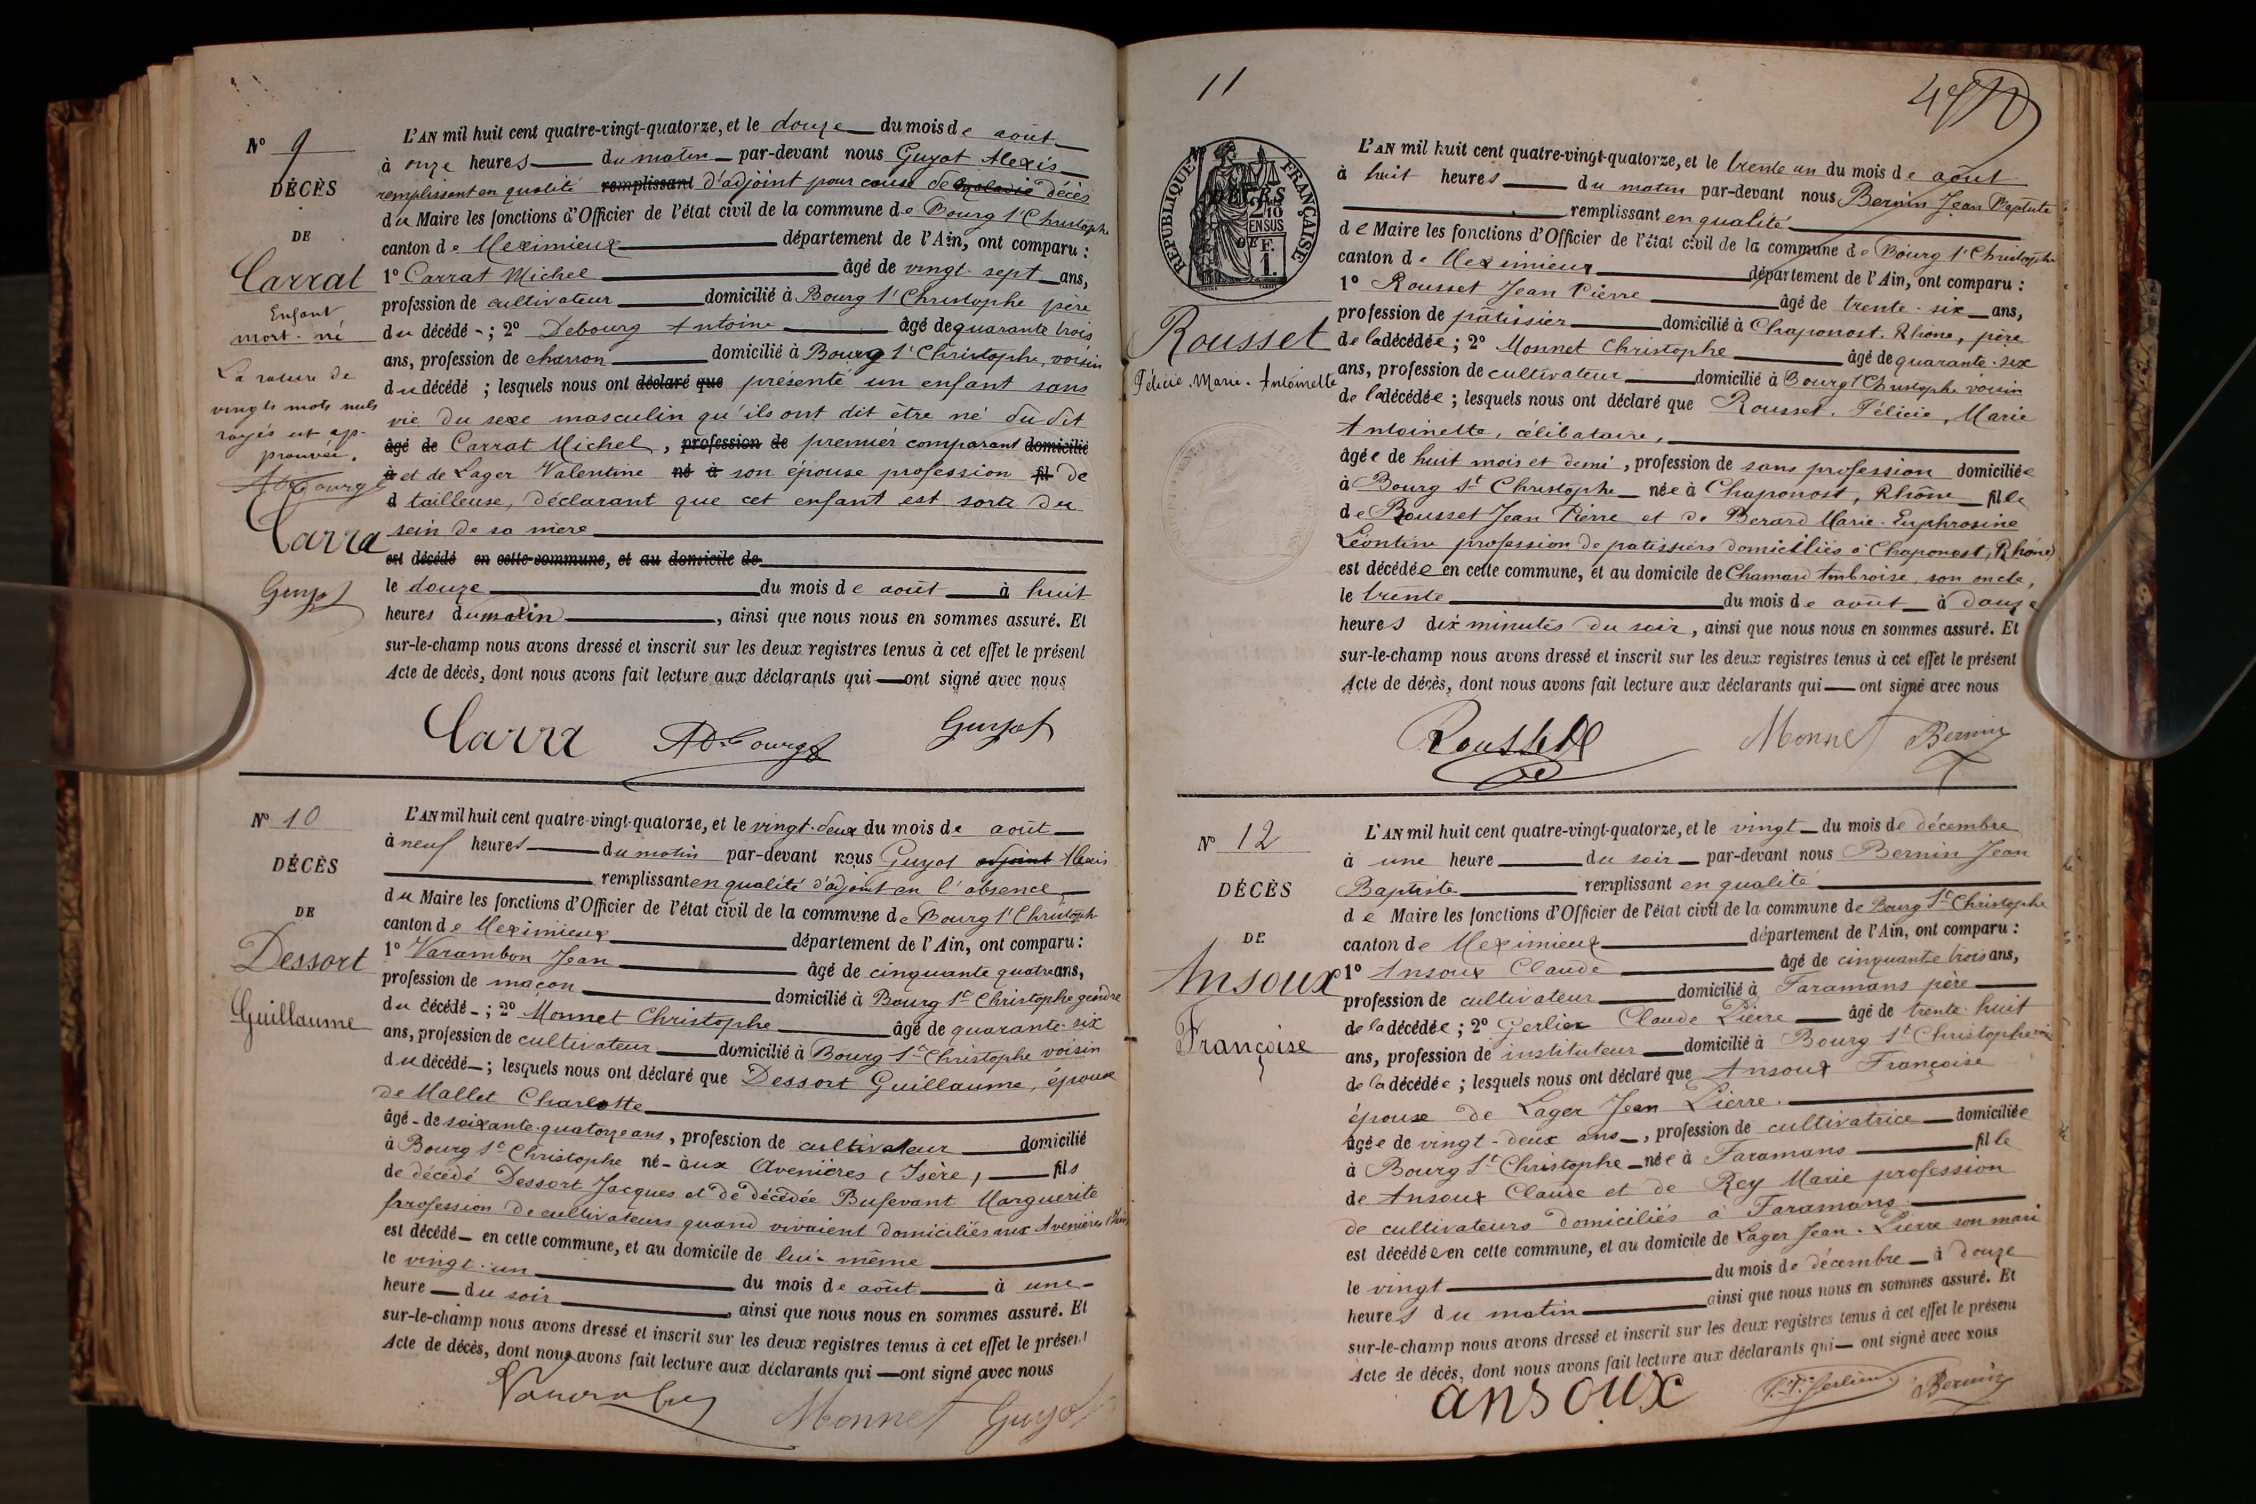 N° 9
DÉCÈS
DE
Carrat
Enfant
mort-né
La rature de
vingts mots nuls
rayés est ap-
prouvée.
Carra
Guyot
L'AN mil huit cent quatre-vingt-quatorze, et le douze du mois de août
à onze heures du matin par-devant nous Guyot Alexis
remplissant en qualité remplissant d'adjoint pour cause de maladie décès
du Maire les fonctions d'Officier de l'état civil de la commune de Bourg St Christophe
canton de Meximieux département de l'Ain, ont comparu :
1° Carrat Michel âgé de vingt-sept ans,
profession de cultivateur domicilié à Bourg St Christophe père
du décédé ; 2° Debourg Antoine âgé de quarante trois
ans, profession de charron domicilié à Bourg St Christophe, voisin
du décédé ; lesquels nous ont déclaré que présenté un enfant sans
vie du sexe masculin qu'ils ont dit être né dudit
âgé de Carrat Michel, profession de premier comparant domicilié
à et de Lager Valentine né à son épouse profession fil de
d tailleuse, déclarant que cet enfant est sorti du
sein de sa mère
est décédé en cette commune, et au domicile de
le douze du mois de août à huit
heures du matin, ainsi que nous nous en sommes assuré. Et
sur-le-champ nous avons dressé et inscrit sur les deux registres tenus à cet effet le présent
Acte de décès, dont nous avons fait lecture aux déclarants qui ont signé avec nous
Carra Guyot
N° 10
DÉCÈS
DE
Dessort
Guillaume
L'AN mil huit cent quatre-vingt-quatorze, et le vingt-deux du mois de août
à neuf heures du matin par-devant nous Guyot adjoint Alexis
remplissant en qualité d'adjoint en l'absence
du Maire les fonctions d'Officier de l'état civil de la commune de Bourg St Christophe
canton de Meximieux département de l'Ain, ont comparu :
1° Varambon Jean âgé de cinquante quatre ans,
profession de maçon domicilié à Bourg St Christophe gendre
du décédé ; 2° Monnet Christophe âgé de quarante-six
ans, profession de cultivateur domicilié à Bourg St Christophe voisin
du décédé ; lesquels nous ont déclaré que Dessort Guillaume, époux
de Mallet Charlotte
âgé de soixante-quatorze ans, profession de cultivateur domicilié
à Bourg St Christophe né aux Avenières (Isère) fils
de décédé Dessort Jacques et de décédée Bufevant Marguerite
profession de cultivateurs quand vivaient domiciliés aux Avenières
est décédé en cette commune, et au domicile de lui-même
le vingt-un du mois de août à une
heure du soir, ainsi que nous nous en sommes assuré. Et
sur-le-champ nous avons dressé et inscrit sur les deux registres tenus à cet effet le présent
Acte de décès, dont nous avons fait lecture aux déclarants qui ont signé avec nous
Monnet Guyot
11
RÉPUBLIQUE FRANÇAISE
2/10 EN SUS
1 F.
Rousset
Félicie-Marie-Antoinette
L'AN mil huit cent quatre-vingt-quatorze, et le trente un du mois de août
à huit heures du matin par-devant nous Bernin Jean Baptiste
remplissant en qualité
de Maire les fonctions d'Officier de l'état civil de la commune de Bourg St Christophe
canton de Meximieux département de l'Ain, ont comparu :
1° Rousset Jean Pierre âgé de trente-six ans,
profession de pâtissier domicilié à Chaponost, Rhône, père
de la décédée ; 2° Monnet Christophe âgé de quarante-six
ans, profession de cultivateur domicilié à Bourg St Christophe voisin
de la décédée ; lesquels nous ont déclaré que Rousset, Félicie, Marie
Antoinette, célibataire,
âgée de huit mois et demi, profession de sans profession domiciliée
à Bourg St Christophe née à Chaponost, Rhône fille
de Rousset Jean Pierre et de Berard Marie-Euphrosine
Léontine profession de patissiers domiciliés à Chaponost, (Rhône)
est décédée en cette commune, et au domicile de Chamard Ambroise, son oncle,
le trente du mois de août à douze
heures dix minutes du soir, ainsi que nous nous en sommes assuré. Et
sur-le-champ nous avons dressé et inscrit sur les deux registres tenus à cet effet le présent
Acte de décès, dont nous avons fait lecture aux déclarants qui ont signé avec nous
Rousset Monnet Bernin
N° 12
DÉCÈS
DE
Ansoux
Françoise
L'AN mil huit cent quatre-vingt-quatorze, et le vingt du mois de décembre
à une heure du soir par-devant nous Bernin Jean
Baptiste remplissant en qualité
de Maire les fonctions d'Officier de l'état civil de la commune de Bourg St Christophe
canton de Meximieux département de l'Ain, ont comparu :
1° Ansoux Claude âgé de cinquante trois ans,
profession de cultivateur domicilié à Faramans père
de la décédée ; 2° Gerlier Claude Pierre âgé de trente-huit
ans, profession de instituteur domicilié à Bourg St Christophe
de la décédée ; lesquels nous ont déclaré que Ansoux Françoise
épouse de Lager Jean Pierre.
âgée de vingt-deux ans, profession de cultivatrice domiciliée
à Bourg St Christophe née à Faramans fille
de Ansoux Claude et de Rey Marie profession
de cultivateurs domiciliés à Faramans
est décédée en cette commune, et au domicile de Lager Jean-Pierre son mari
le vingt du mois de décembre à douze
heures du matin ainsi que nous nous en sommes assuré. Et
sur-le-champ nous avons dressé et inscrit sur les deux registres tenus à cet effet le présent
Acte de décès, dont nous avons fait lecture aux déclarants qui ont signé avec nous
ansoux Gerlier Bernin